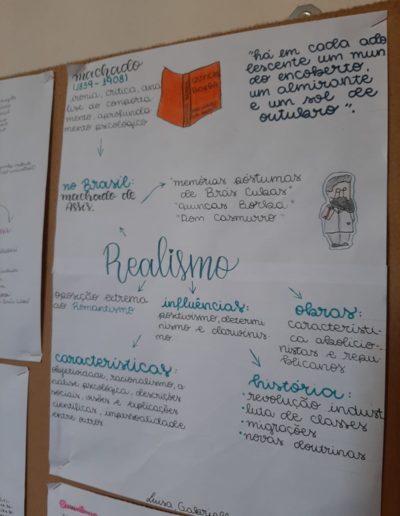 machado
(1839 - 1908)
ironia, crítica, aná
lise de comporta
mento, aprofunda
mento psicológico
"há em cada ado
lescente um mun
do encoberto,
um almirante
e um sol de
outubro".
no Brasil:
machado de
Assis.
"memórias póstumas
de Brás Cubas"
"Quincas Borba"
"Dom Casmurro"
Realismo
oposição extrema
ao Romantismo
influências:
positivismo, determi
nismo e darwinis
mo
obras:
característi-
ca abolicio-
nistas e repu
blicanos
características:
objetividade, racionalismo, a
nálise psicológica, descrições
sociais, visões e explicações
científicas, impessoalidade
entre outros
história:
revolução indust
luta de classes
migrações
novas doutrinas
Luisa